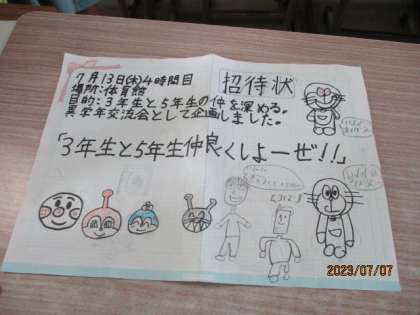 7月13日(木)4時間目
招待状
場所:体育館
目的:3年生と5年生の仲を深める。
異学年交流会として企画しました。
「3年生と5年生仲良くしよーぜ!!」
2023/07/07